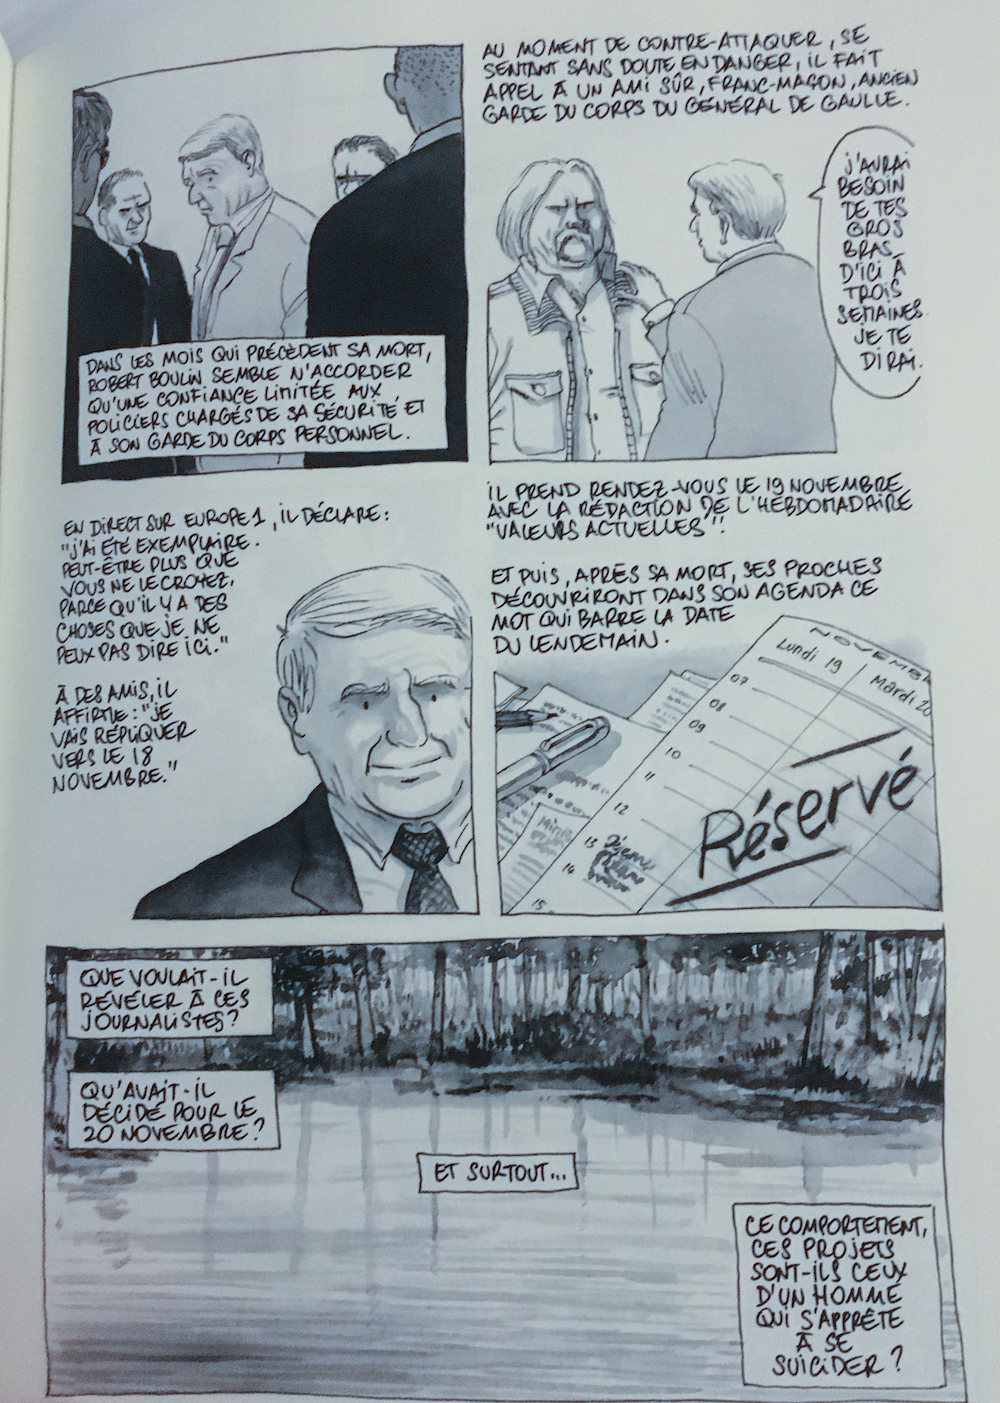 DANS LES MOIS QUI PRÉCÈDENT SA MORT,
ROBERT BOULIN SEMBLE N'ACCORDER
QU'UNE CONFIANCE LIMITÉE AUX
POLICIERS CHARGÉS DE SA SÉCURITÉ ET
À SON GARDE DU CORPS PERSONNEL.
AU MOMENT DE CONTRE-ATTAQUER, SE
SENTANT SANS DOUTE EN DANGER, IL FAIT
APPEL À UN AMI SÛR, FRANC-MAÇON, ANCIEN
GARDE DU CORPS DU GÉNÉRAL DE GAULLE.
J'AURAI
BESOIN
DE TES
GROS
BRAS
D'ICI À
TROIS
SEMAINES.
JE TE
DIRAI.
EN DIRECT SUR EUROPE 1, IL DÉCLARE :
"J'AI ÉTÉ EXEMPLAIRE.
PEUT-ÊTRE PLUS QUE
VOUS NE LE CROYEZ,
PARCE QU'IL Y A DES
CHOSES QUE JE NE
PEUX PAS DIRE ICI."
À DES AMIS, IL
AFFIRME : "JE
VAIS RÉPLIQUER
VERS LE 18
NOVEMBRE."
IL PREND RENDEZ-VOUS LE 19 NOVEMBRE
AVEC LA RÉDACTION DE L'HEBDOMADAIRE
"VALEURS ACTUELLES".
ET PUIS, APRÈS SA MORT, SES PROCHES
DÉCOUVRIRONT DANS SON AGENDA CE
MOT QUI BARRE LA DATE
DU LENDEMAIN.
NOVEMB
Lundi 19
Mardi 20
07
08
09
10
11
12
13
14
15
Réservé
QUE VOULAIT-IL
RÉVÉLER À CES
JOURNALISTES ?
QU'AVAIT-IL
DÉCIDÉ POUR LE
20 NOVEMBRE ?
ET SURTOUT...
CE COMPORTEMENT,
CES PROJETS
SONT-ILS CEUX
D'UN HOMME
QUI S'APPRÊTE
À SE
SUICIDER ?